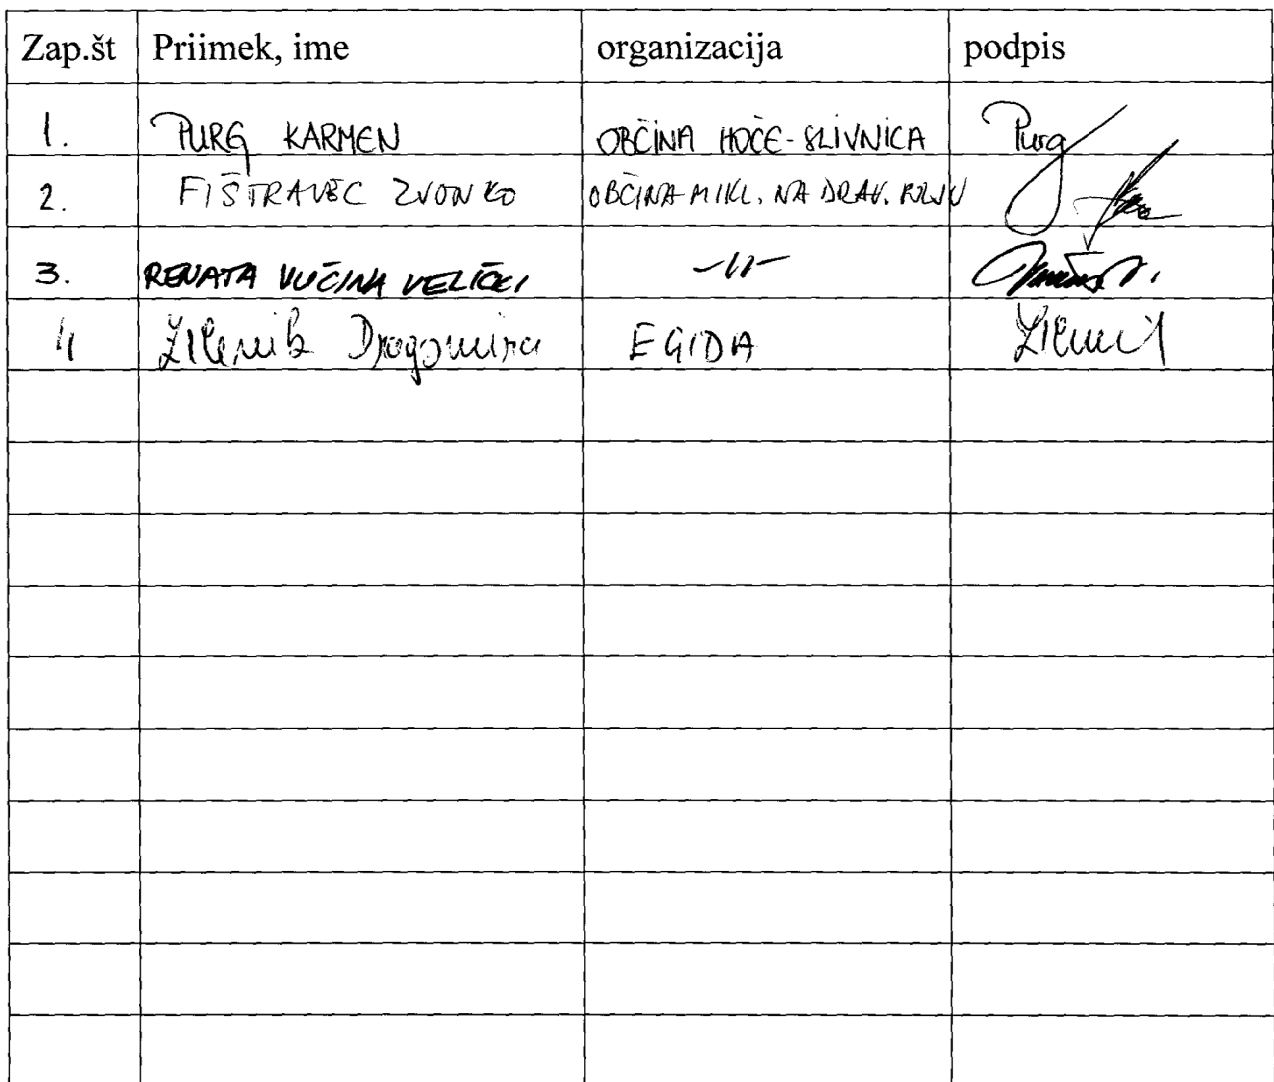 Zap.št Priimek, ime organizacija podpis
1. PURG KARMEN OBČINA HOČE-SLIVNICA Purg
2. FIŠTRAVEC ZVONKO OBČINA MIKL. NA DRAV. POLJU
3. RENATA VUČINA VELIČKI -11-
4 Dragomira EGIDA